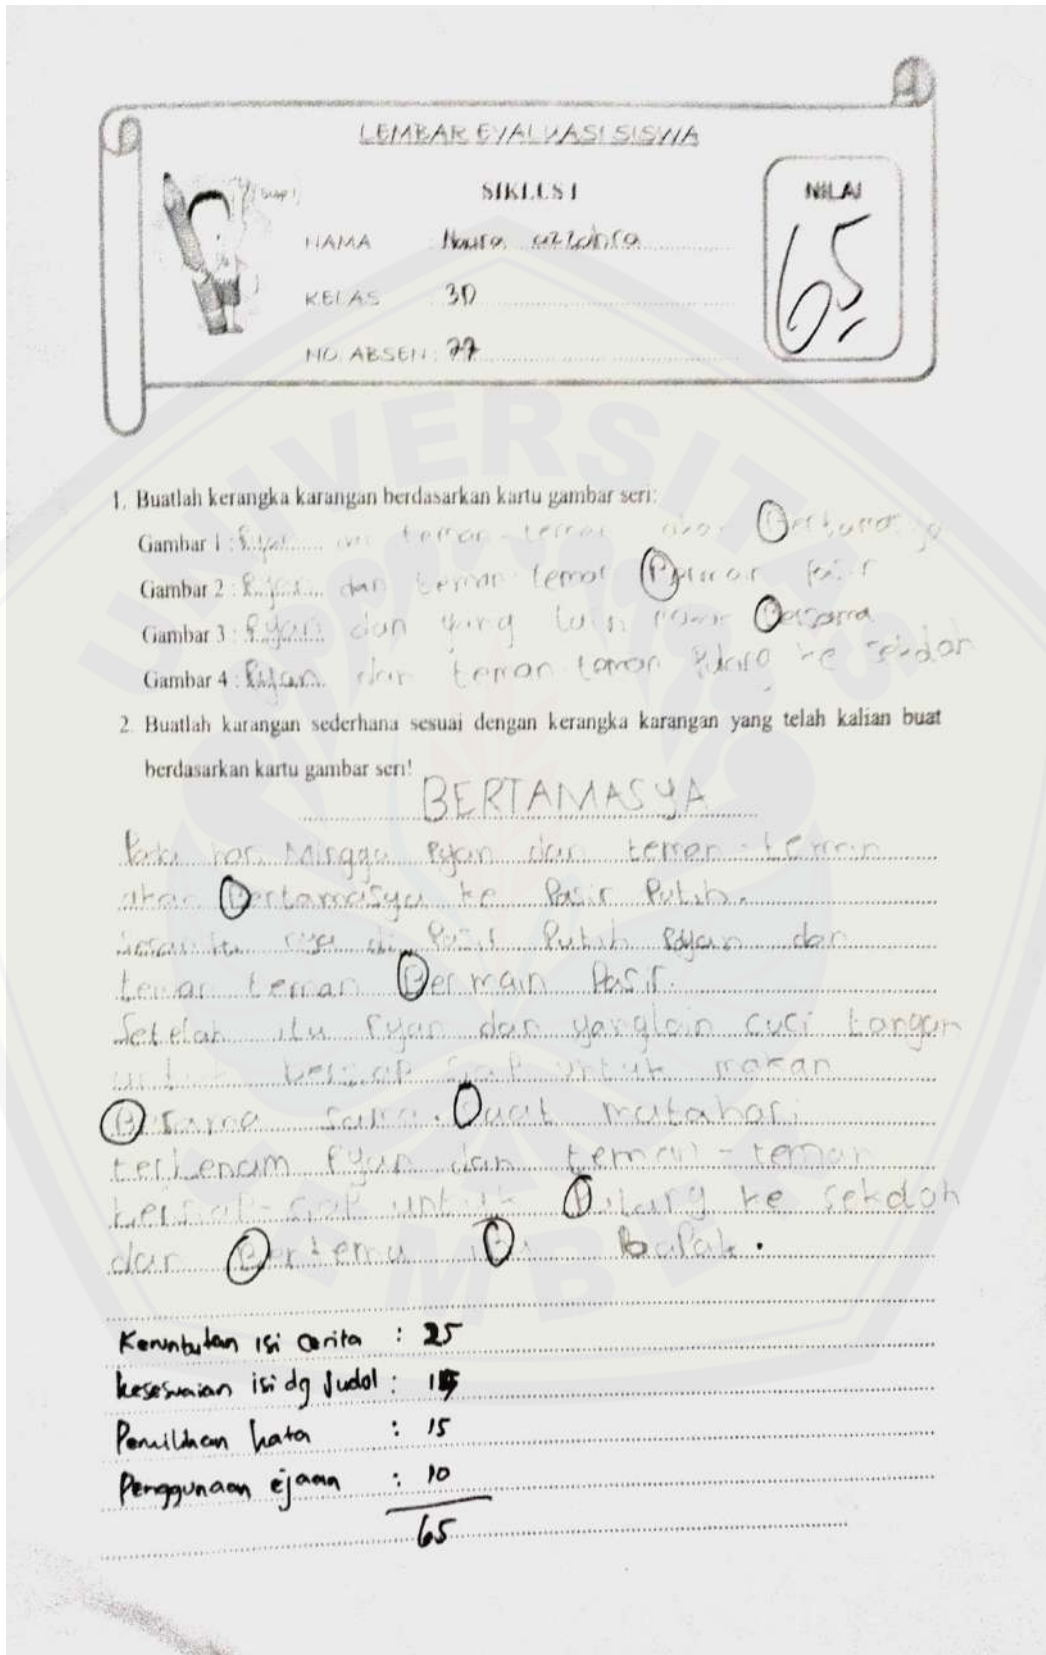 LEMBAR EVALUASI SISWA
SIKLUS I
NILAI
65
NAMA : Naura azzahra
KELAS : 3D
NO. ABSEN :
1. Buatlah kerangka karangan berdasarkan kartu gambar seri:
Gambar 1 : Ryan teman-teman akan Bertamasya
Gambar 2 : Ryan dan teman teman Bermain Pasir
Gambar 3 : Ryan dan yang lain makan Bersama
Gambar 4 : Ryan dan teman teman Pulang ke sekolah
2. Buatlah karangan sederhana sesuai dengan kerangka karangan yang telah kalian buat
berdasarkan kartu gambar seri!
BERTAMASYA
Pada hari Minggu Ryan dan teman-teman
akan Bertamasya ke Pasir Putih.
di Pasir Putih Ryan dan
teman teman Bermain Pasir.
Setelah itu Ryan dan yanglain cuci tangan
untuk makan
Bersama sama. Saat matahari
terbenam Ryan dan teman-teman
bersiap-siap untuk Pulang ke sekolah
dan Bertemu Bapak.
Keruntutan isi cerita : 25
kesesuaian isi dg Judol : 15
Pemilihan kata : 15
Penggunaan ejaan : 10
65
UNIVERSITAS